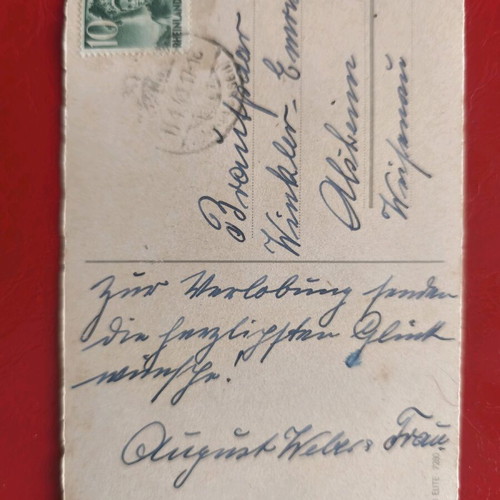 10
RHEINLAND
Brautpaar
Winkler-
Alsheim
Weisenau
Zur Verlobung senden
die herzlichsten Glück
wünsche!
August Weber u. Frau
ELITE